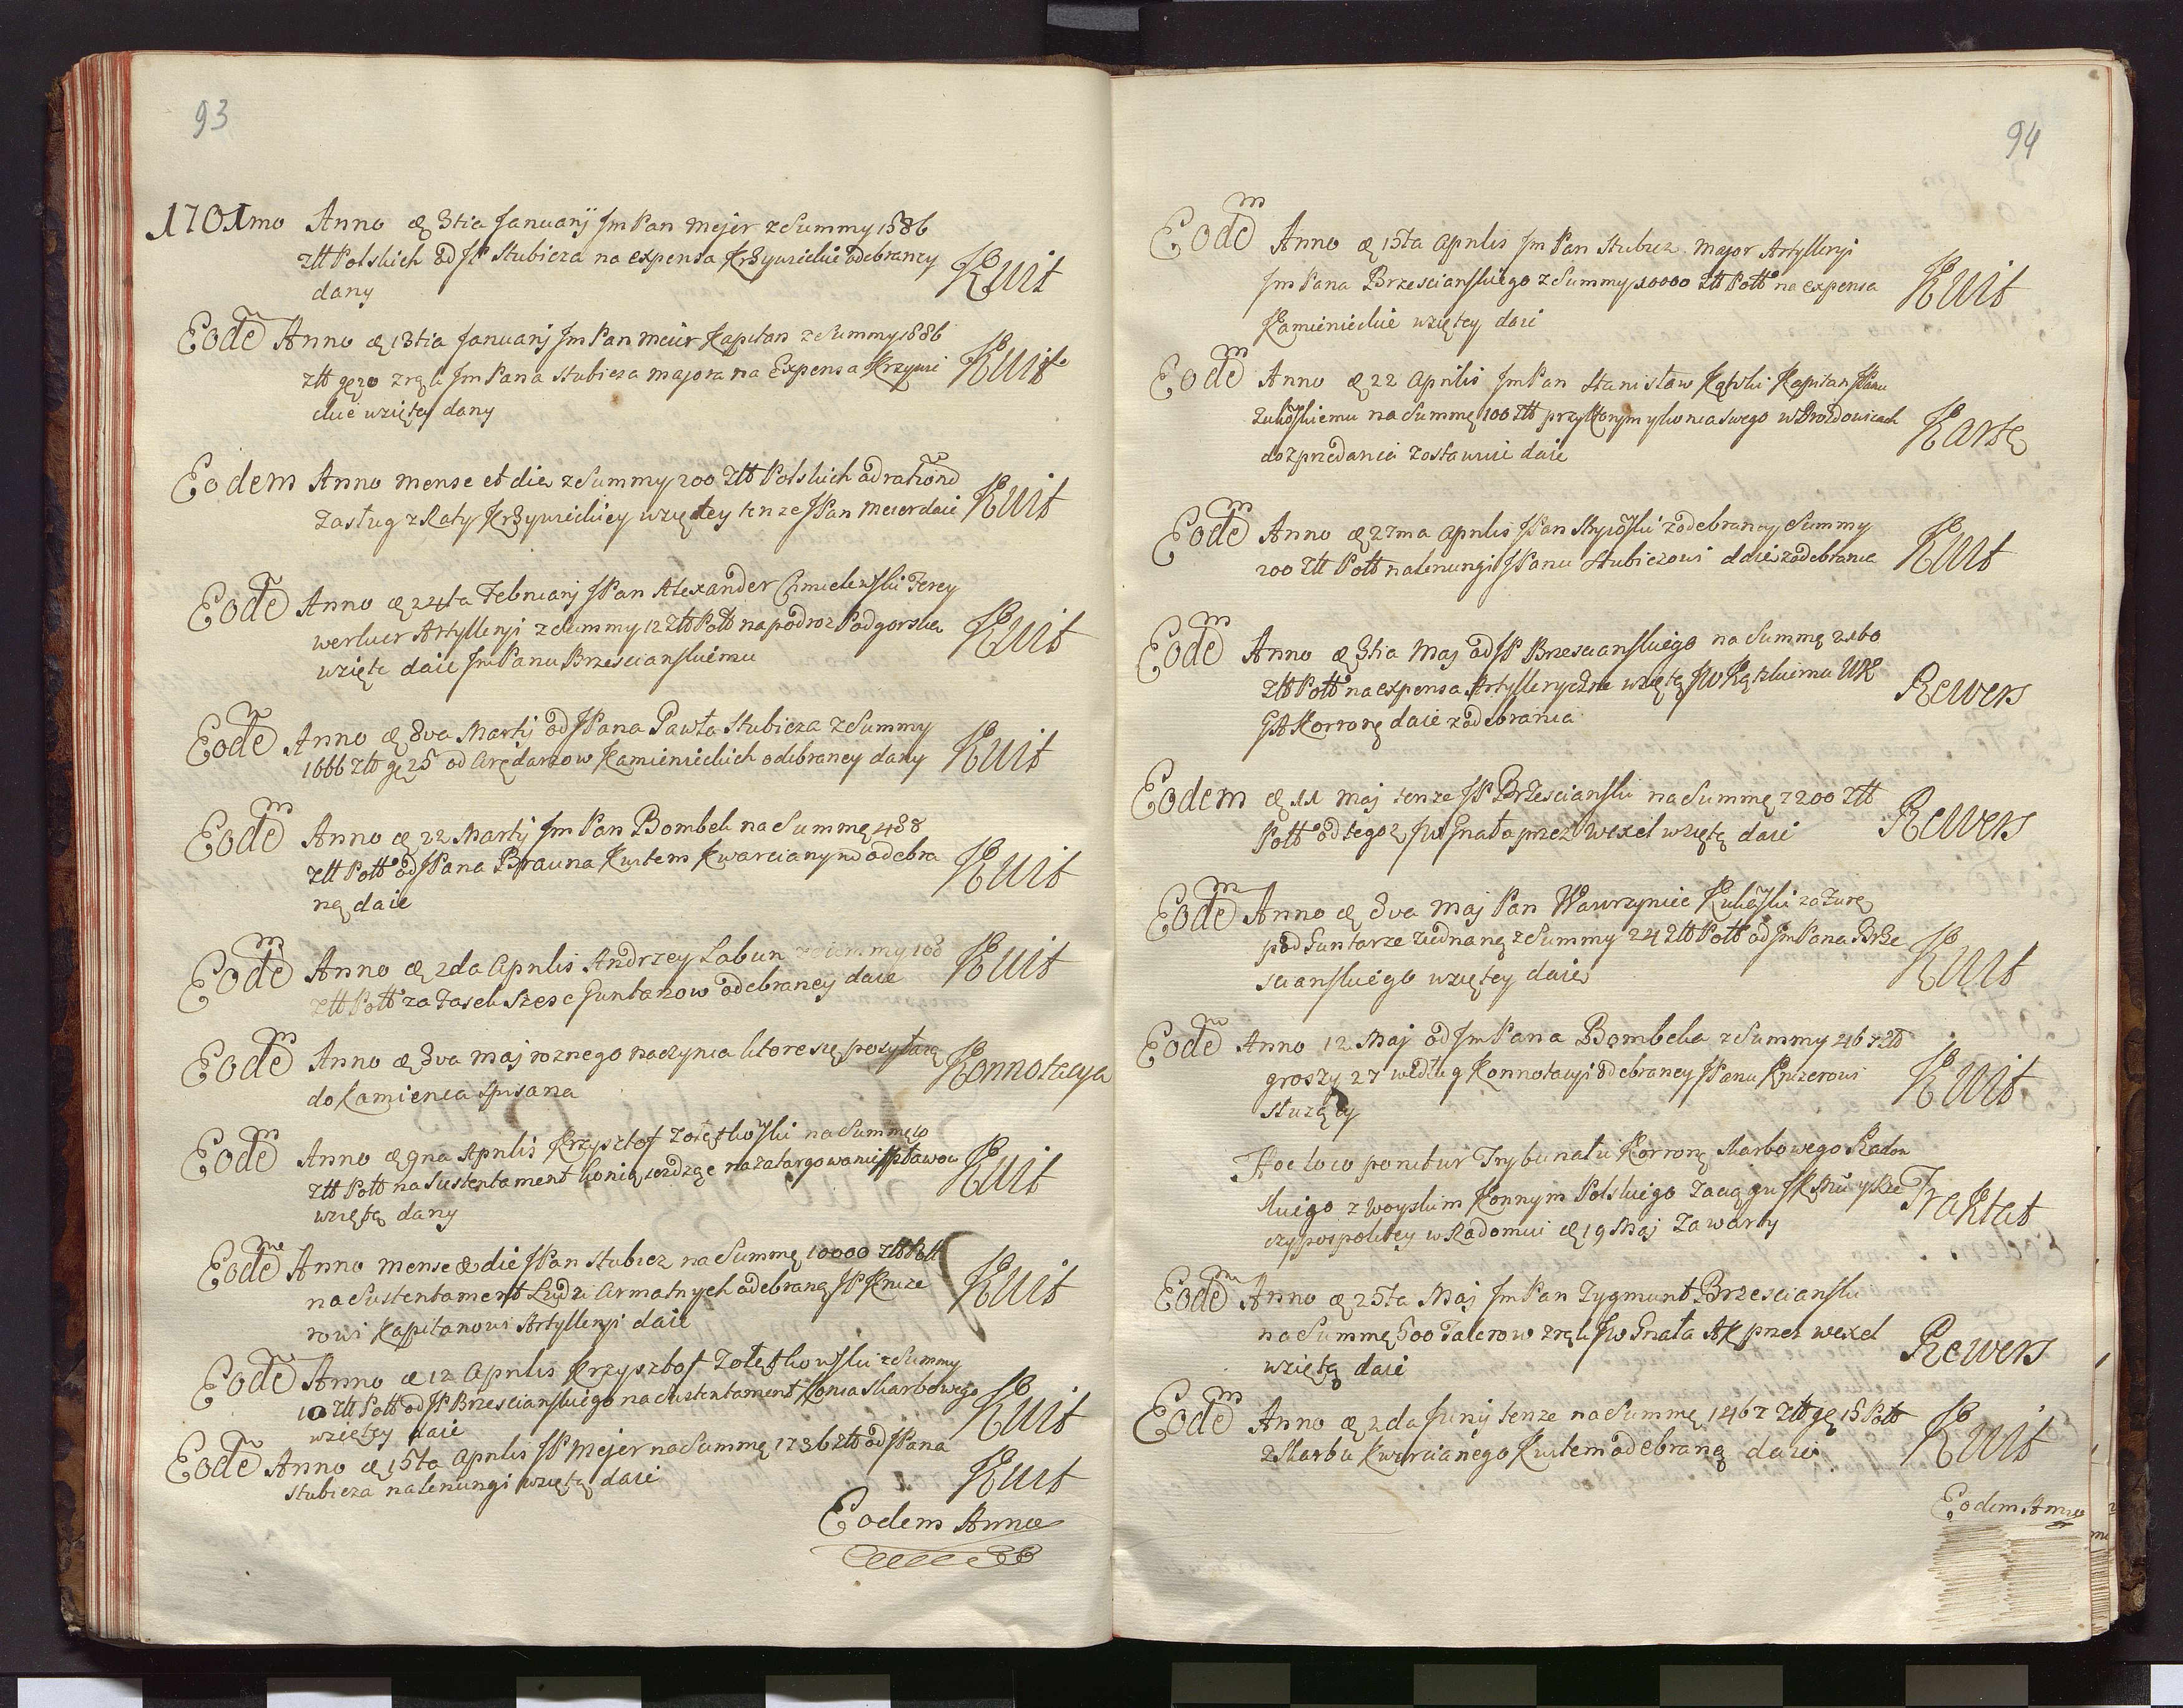 93
1701mo Anno & 3tia Januarij Jm Pan Mejer z Summy 1586
Złł Polskich od JP Stubicza na expensa Krzywickie odebrancy Kwit
dany
Eode Anno & 13tia Januarij Jm Pan Meier Kapitan z Summy 1886
Złł gr 20 z rąk Jm Pana Stubicza majora na Expensa Krzywi Kwit
ckie wziętey dany
Eodem Anno mense et die z Summy 200 Złł Polskich ad rationē
Zasług z Raty Krzywickiey wziętey tenze JPan Meier daie Kwit
Eode Anno & 24ta Februarij JPan Alexander Chmielewski Feyer
werker Artyllerji z Summy 12 Złł Poll na podroz Podgorska Kwit
wzięte daie Jm Panu Brzescianskiemu
Eode Anno & 8va Martij od JPana Pawła Stubicza z Summy
1666 Złł gr 25 od Arędarzow Kamienieckich odebraney dany Kwit
Eodem Anno & 22 Martij Jm Pan Bombek na Summę 488
Złł Poll od JPana Brauna Kwitem Kwarcianym odebra Kwit
ną daie
Eodem Anno & 2da Aprilis Andrzey Labun z Summy 108
Złł Poll za Fasek szesc Guntarow odebraney daie Kwit
Eodem Anno & 8va Maj roznego naczynia ktore się posyłaią Konnotacya
do Kamienca spisana
Eodem Anno & 9na Aprilis Krzysztof Zołętkowski na Summę 10
Złł Poll na Sustentament konia Kwit
wziętą dany
Eodem Anno mense & die JPan Stubicz na Summę 10000 Złł Poll
na Sustentament Ludzi Armatnych odebraną JP Knize Kwit
rowi Kapitanowi Artyllerji daie
Eode Anno & 12 Aprilis Krzysztof Zołętkowski z Summy
10 Złł Poll od JP Brzescianskiego na Sustentament Konia Skarbowego Kwit
wziętey daie
Eode Anno & 15ta Aprilis JP Mejer na Summę 1736 Złł od JPana
Stubicza na lenungi wziętą daie Kwit
Eodem Anno
94
Eodem Anno & 15ta Aprilis Jm Pan Stubicz Major Artyllerji
Jm Pana Brzescianskiego z Summy 10000 Złł Poll na expensa Kwit
Kamienieckie wziętey daie
Eodem Anno & 22 Aprilis Jm Pan Stanisław Kątski Kapitan JPanu
Zukowskiemu na Summę 100 Złł przy ktorym konia swego w Drozdowicach Kartę
do zprzedania zostawuie daie
Eodem Anno & 27ma Aprilis JPan z odebraney Summy
200 Złł Poll na lenungi JPanu Stubiczowi daie z odebrania Kwit
Eodem Anno & 3tia Maj od JP Brzescianskiego na Summę 2160
Złł Poll na expensa Artylleryczne wziętą JW Kątskiemu WK Rewers
GA Korronę daie z odebrania
Eodem & 11 Maj tenze JP Brzescianski na Summę 7200 Złł
Poll od tegoz JW Gnata przez wexel wziętą daie Rewers
Eodem Anno & 8va Maj Pan Wawrzyniec Kukowski za Furę
pod Guntarze ziednaną z Summy 24 Złł Poll od Jm Pana Brze
scianskiego wziętey daie Kwit
Eodem Anno 12 Maj od Jm Pana Bombeka z Summy 2167 Złł
groszy 27 według Konnotacyi odebraney JPanu Knizerowi Kwit
słuzący
Hoc loco ponitur Trybunału Korronę Skarbowego Radom
skiego z Woyskim Konnym Polskiego Zaciągu JKMci y Rze Traktat
czypospolitey w Radomiu & 19 Maj Zawarty
Eodem Anno & 25ta Maj Jm Pan Zygmunt Brzescianski
na Summę 500 Talerow z rąk JW Gnata AK przez wexel Rewers
wziętą daie
Eodem Anno & 2da Junij tenze na Summę 1467 Złł gr 15 Poll
z Skarbu Kwarcianego Kwitem odebraną daie Kwit
Eodem Anno